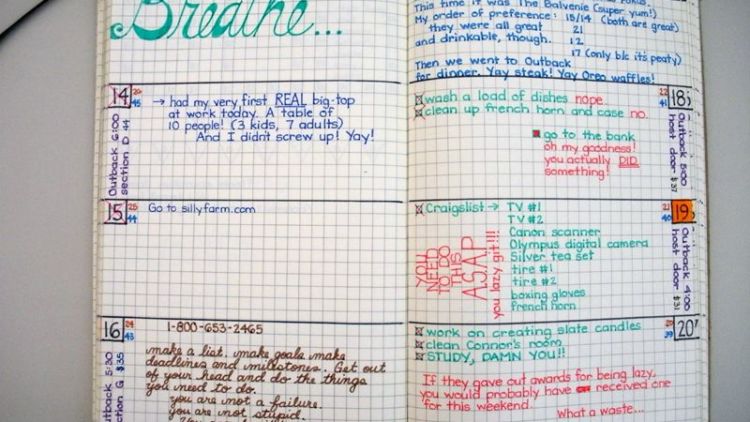 Breathe...
14
20
45
Outback 6:00
section D 44
→ had my very first REAL big-top
at work today. A table of
10 people! (3 kids, 7 adults)
And I didn't screw up! Yay!
15
25
44
Go to sillyfarm.com
16
24
43
Outback 5:30
ction G $35
1-800-653-2465
make a list. make goals. make
deadlines and milestones. Get out
of your head and do the things
you need to do.
you are not a failure.
you are not stupid.
This time it was The Balvenie (super yum!)
My order of preference: 15/14 (both are great)
they were all great 21
and drinkable, though. 12
17 (only b/c it's peaty)
Then we went to Outback
for dinner. Yay steak! Yay Oreo waffles!
18
22
41
Outback 5:00
host door $37
wash a load of dishes nope.
clean up french horn and case no.
go to the bank
oh my goodness!
you actually DID
something!
19
21
40
Outback 4:00
host door $31
Craigslist → TV #1
TV #2
Canon scanner
Olympus digital camera
Silver tea set
tire #1
tire #2
boxing gloves
french horn
YOU
NEED
TO DO
THIS
A.S.A.P
you lazy git!!!
20
39
work on creating slate candles
clean Connor's room
STUDY, DAMN YOU!!
If they gave out awards for being lazy,
you would probably have received one
for this weekend.
What a waste...